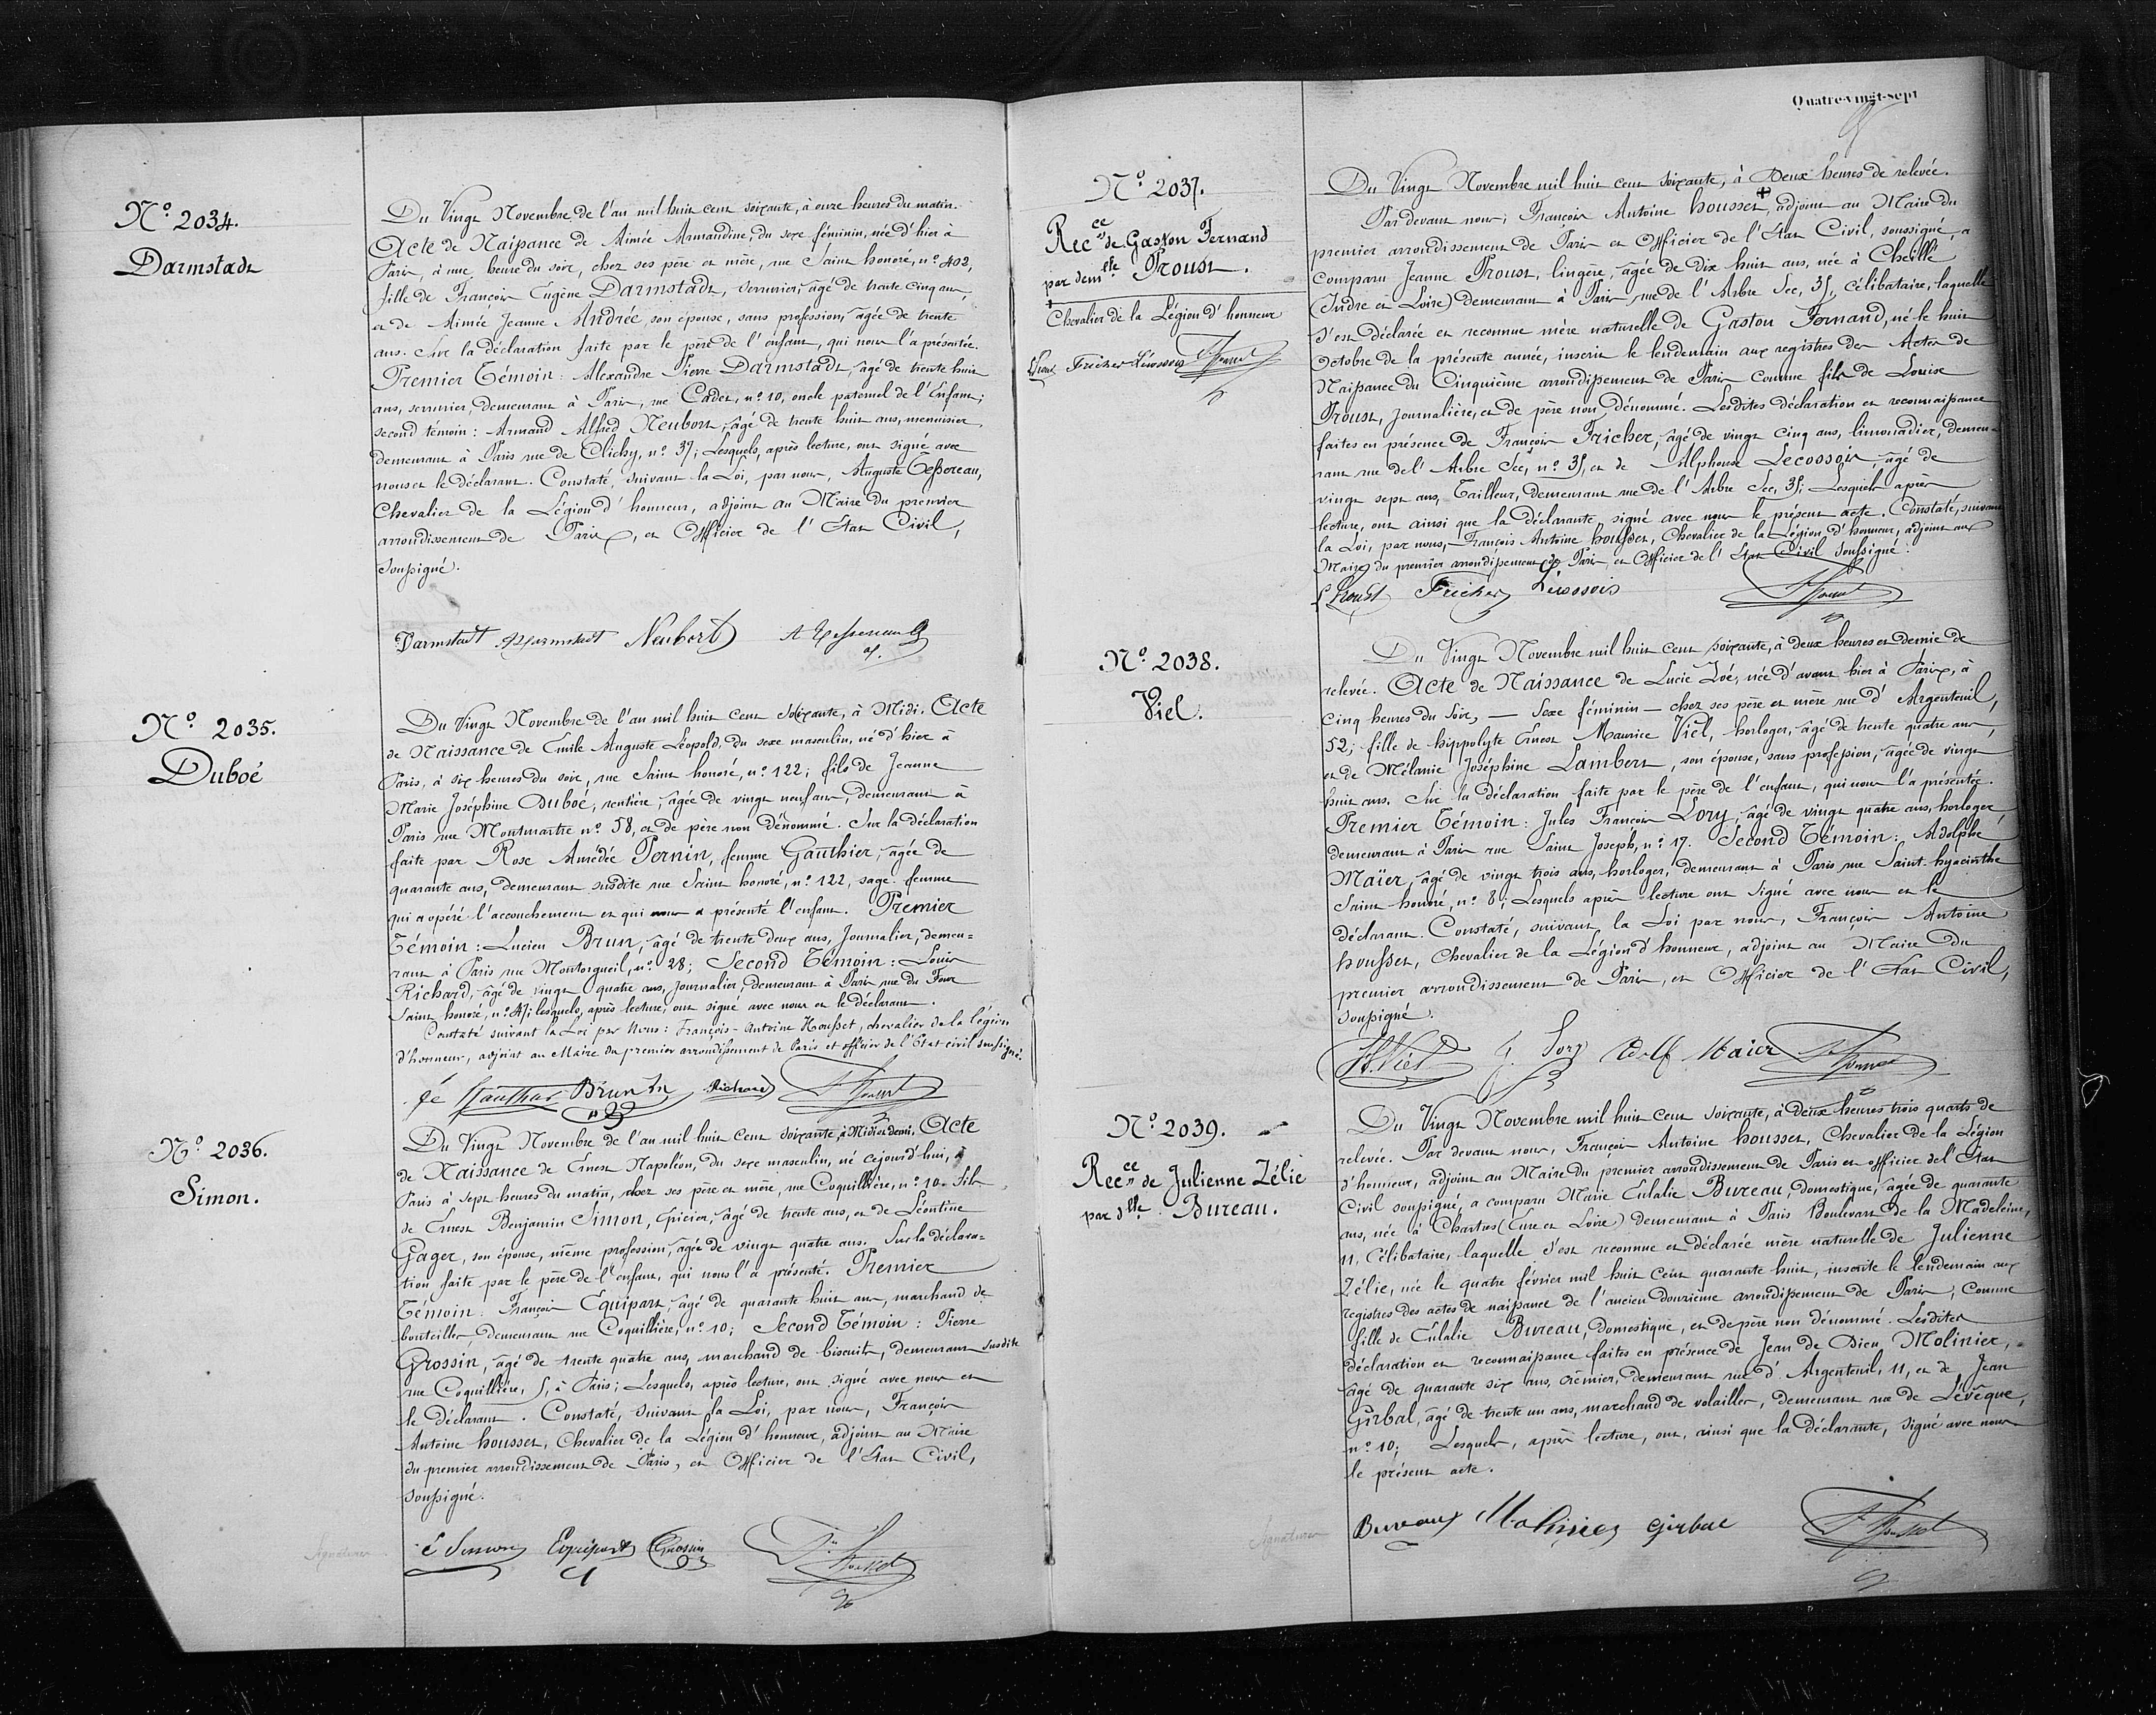 Nº 2034.
Darmstadt
Du Vingt Novembre de l'an mil huit cent soixante, à onze heures du matin.
Acte de Naissance de Aimée Armandine, du sexe féminin, née d'hier à
Paris, à une heure du soir, chez ses père et mère, rue Saint honoré, nº 402,
fille de François Eugène Darmstadt, serrurier, âgé de trente cinq ans,
et de Aimée Jeanne Andrée, son épouse, sans profession, âgée de trente
ans. Sur la déclaration faite par le père de l'enfant, qui nous l'a présentée.
Premier Témoin: Alexandre Pierre Darmstadt, âgé de trente huit
ans, serrurier, demeurant à Paris, rue Cadet, nº 10, oncle paternel de l'Enfant;
second témoin: Armand Alfred Neubort, âgé de trente huit ans, menuisier,
demeurant à Paris rue de Clichy, nº 37; Lesquels, après lecture, ont signé avec
nous et le déclarant. Constaté, suivant la Loi, par nous, Auguste Tessereau,
Chevalier de la Légion d'honneur, adjoint au Maire du premier
arrondissement de Paris, et Officier de l'Etat Civil,
soussigné.
Darmstadt Darmstadt Neubort A Tessereau
Nº 2035.
Duboé
Du Vingt Novembre de l'an mil huit cent soixante, à Midi. Acte
de Naissance de Emile Auguste Léopold, du sexe masculin, né d'hier à
Paris, à six heures du soir, rue Saint honoré, nº 122; fils de Jeanne
Marie Joséphine Duboé, rentière, âgée de vingt neuf ans, demeurant à
Paris rue Montmartre nº 58, et de père non dénommé. Sur la déclaration
faite par Rose Amédée Pernin, femme Gauthier, âgée de
quarante ans, demeurant susdite rue Saint honoré, nº 122, sage-femme
qui a opéré l'accouchement et qui nous a présenté l'enfant. Premier
Témoin: Lucien Brun, âgé de trente deux ans, Journalier, demeu=
rant à Paris rue Montorgueil, nº 28; Second Témoin: Louis
Richard, âgé de vingt quatre ans, journalier, demeurant à Paris rue du Four
Saint honoré, nº 47; lesquels, après lecture, ont signé avec nous et le déclarant.
Constaté suivant la Loi par Nous: François-Antoine Housset, chevalier de la légion
d'honneur, adjoint au Maire du premier arrondissement de Paris et officier de l'Etat civil soussigné.
fe Gauthier Brun Richard Housset
Nº 2036.
Simon.
Du Vingt Novembre de l'an mil huit cent soixante, à Midi et demi, Acte
de Naissance de Ernest Napoléon, du sexe masculin, né cejourd'hui, à
Paris à sept heures du matin, chez ses père et mère, rue Coquillière, nº 10. Fils
de Ernest Benjamin Simon, épicier, âgé de trente ans, et de Léontine
Gager, son épouse, même profession, âgée de vingt quatre ans. Sur la déclara=
tion faite par le père de l'enfant, qui nous l'a présenté. Premier
Témoin: François Equipart, âgé de quarante huit ans, marchand de
bouteilles demeurant rue Coquillière, nº 10; Second Témoin: Pierre
Grossin, âgé de trente quatre ans, marchand de biscuits, demeurant susdite
rue Coquillière, 5, à Paris; Lesquels, après lecture, ont signé avec nous et
le déclarant. Constaté, suivant la Loi, par nous, François
Antoine housset, Chevalier de la Légion d'honneur, adjoint au Maire
du premier arrondissement de Paris, et Officier de l'Etat Civil,
soussigné.
Signatures
E Simon Equipart Grossin Housset
Quatre-vingt-sept
Nº 2037.
Recce de Gaston Fernand
par demlle Proust.
+ Chevalier de la Légion d'honneur
Proust Fricher Lécossois Housset
Du Vingt Novembre mil huit cent soixante, à Deux heures de relevée.
Par devant nous; François Antoine housset +, adjoint au Maire du
premier arrondissement de Paris et Officier de l'Etat Civil, soussigné, a
comparu Jeanne Proust, lingère, âgée de dix huit ans, née à Cheillé
(Indre et Loire) demeurant à Paris rue de l'Arbre Sec, 35, célibataire, laquelle
s'est déclarée et reconnue mère naturelle de Gaston Fernand, né le huit
Octobre de la présente année, inscrit le lendemain aux registres des Actes de
Naissance du Cinquième arrondissement de Paris comme fils de Louise
Proust, Journalière, et de père non dénommé. Lesdites déclaration et reconnaissance
faites en présence de François Fricher, âgé de vingt cinq ans, limonadier, demeu=
rant rue de l'Arbre Sec, nº 35, et de Alphonse Lecossois, âgé de
vingt sept ans, Tailleur, demeurant rue de l'Arbre Sec, 35; Lesquels après
lecture, ont ainsi que la déclarante signé avec nous le présent acte. Constaté, suivant
la Loi, par nous, François Antoine housset, Chevalier de la Légion d'honneur, adjoint au
Maire du premier arrondissement de Paris et Officier de l'Etat Civil soussigné.
Proust Fricher Lécossois Housset
Nº 2038.
Viel.
Du Vingt Novembre mil huit cent soixante, à deux heures et demie de
relevée. Acte de Naissance de Lucie Zoé, née d'avant hier à Paris, à
cinq heures du soir, — Sexe féminin — chez ses père et mère rue d'Argenteuil,
52; fille de hippolyte Ernest Maurice Viel, horloger, âgé de trente quatre ans,
et de Mélanie Joséphine Lambert, son épouse, sans profession, âgée de vingt
huit ans. Sur la déclaration faite par le père de l'enfant, qui nous l'a présentée.
Premier Témoin: Jules François Lory, âgé de vingt quatre ans, horloger,
demeurant à Paris rue Saint Joseph, nº 17. Second Témoin: Adolphe
Maïer, âgé de vingt trois ans, horloger, demeurant à Paris rue Saint-hyacinthe
Saint honoré, nº 8; Lesquels après lecture ont signé avec nous et le
déclarant. Constaté, suivant la Loi par nous, François Antoine
housset, Chevalier de la Légion d'honneur, adjoint au Maire du
premier arrondissement de Paris, et Officier de l'Etat Civil,
soussigné.
H. Viel J. Lory Adolf Maier Housset
Nº 2039.
Recce de Julienne Zélie
par dlle Bureau.
Du Vingt Novembre mil huit cent soixante, à deux heures trois quarts de
relevée. Par devant nous, François Antoine housset, Chevalier de la Légion
d'honneur, adjoint au Maire du premier arrondissement de Paris et officier de l'Etat
Civil soussigné, a comparu Marie Eulalie Bureau, domestique, âgée de quarante
ans, née à Chartres (Eure et Loire) demeurant à Paris Boulevart de la Madeleine,
11, Célibataire, laquelle s'est reconnue et déclarée mère naturelle de Julienne
Zélie, née le quatre février mil huit cent quarante huit, inscrite le lendemain aux
registres des actes de naissance de l'ancien douzième arrondissement de Paris, comme
fille de Eulalie Bureau, domestique, et de père non dénommé. Lesdites
déclaration et reconnaissance faites en présence de Jean de Dieu Molinier,
âgé de quarante six ans, crémier, demeurant rue d'Argenteuil, 11, et de Jean
Girbal, âgé de trente un ans, marchand de volailles, demeurant rue de Lévêque,
nº 10; Lesquels, après lecture, ont, ainsi que la déclarante, signé avec nous
le présent acte.
Signatures
Bureau Molinier Girbal Housset